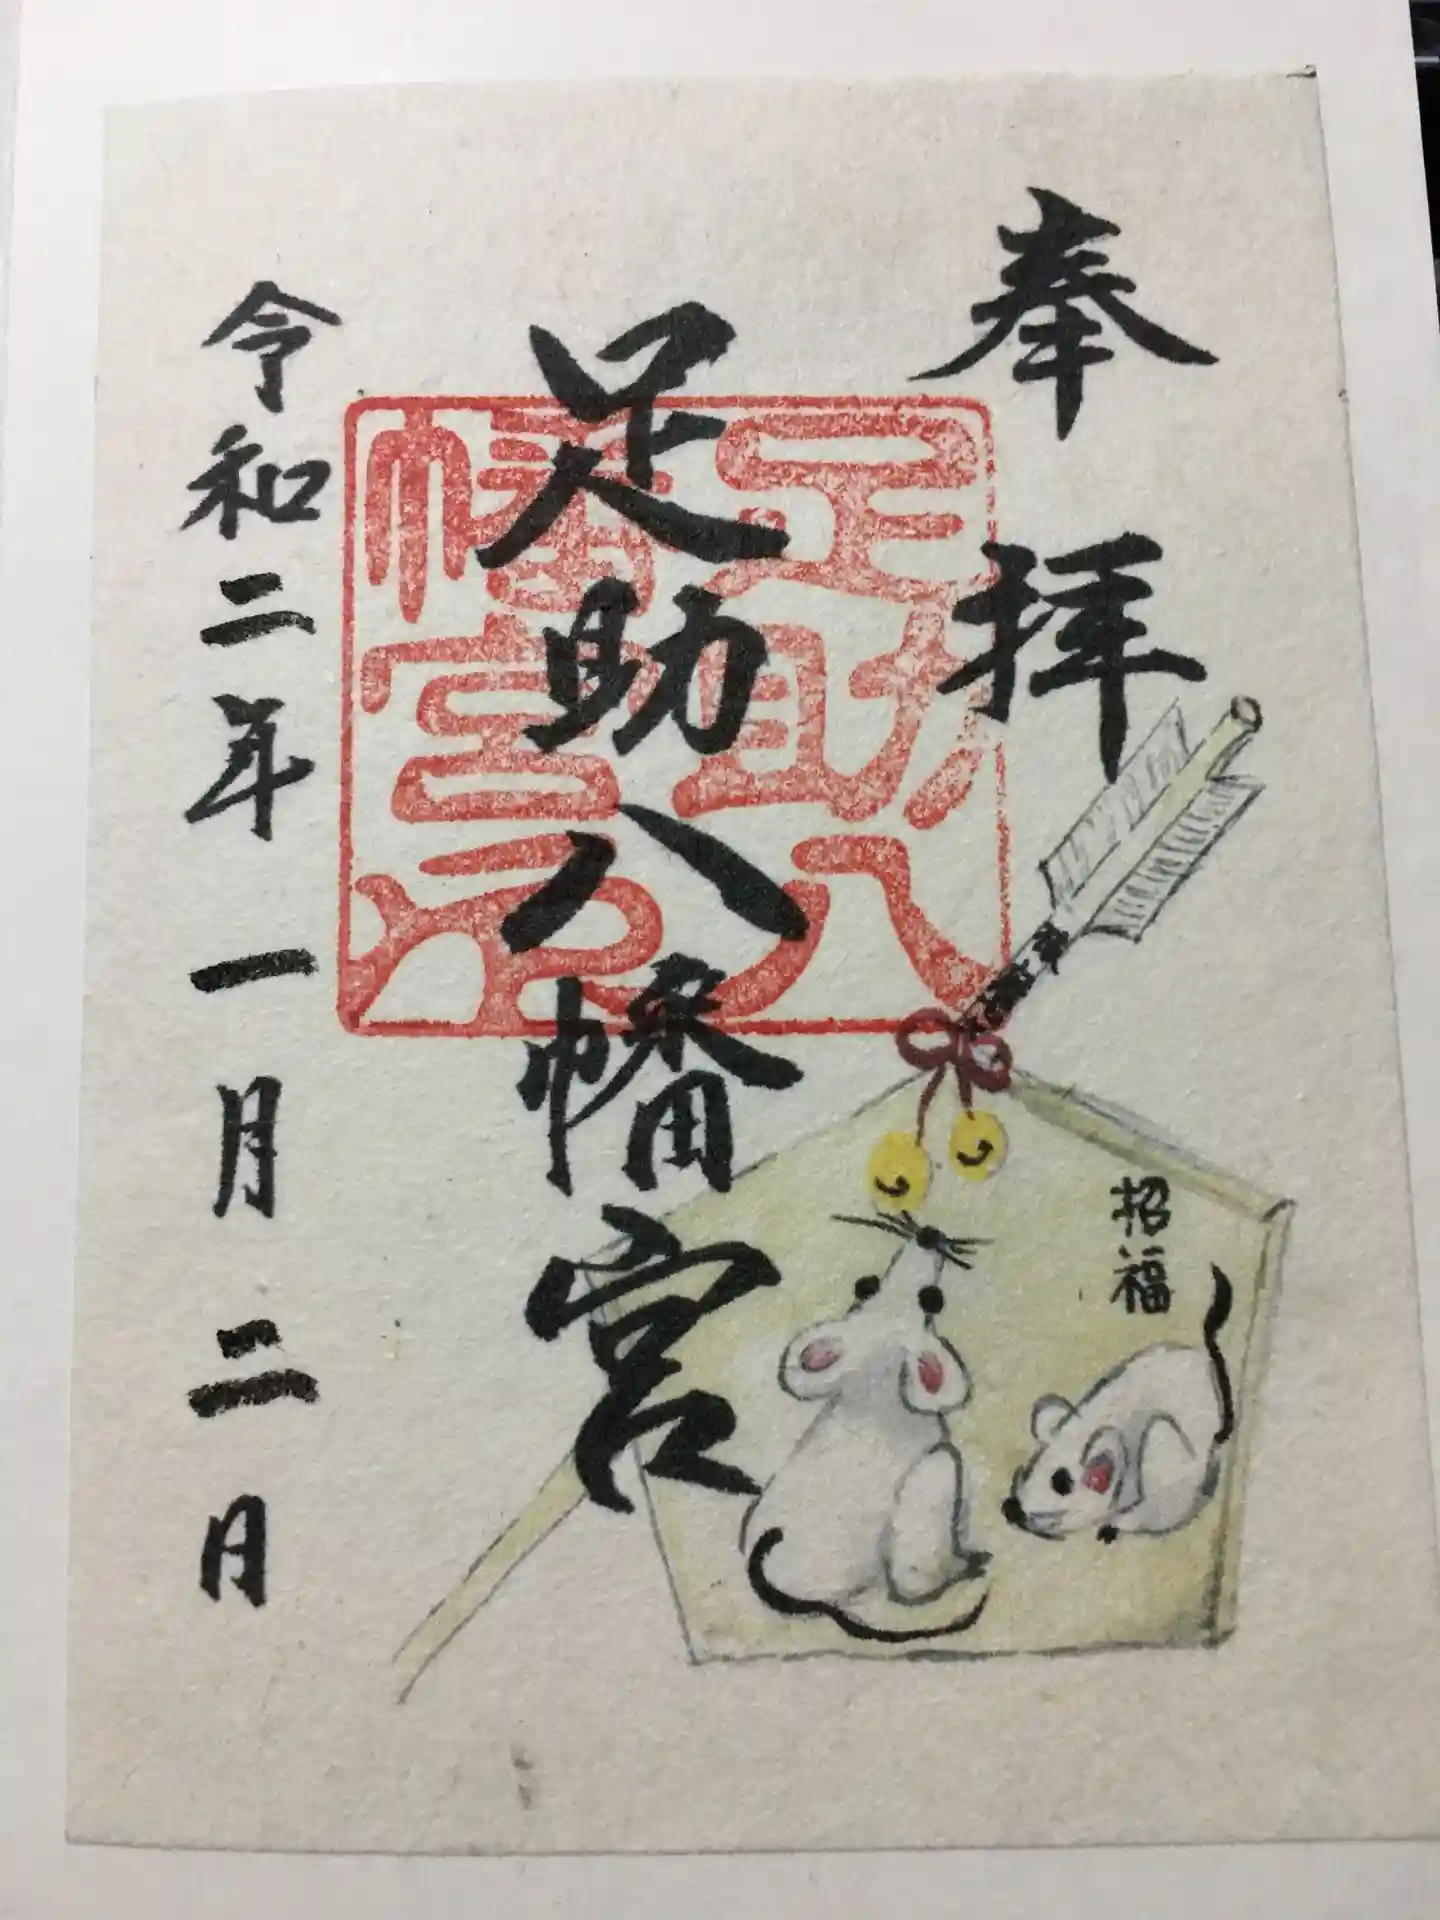 奉拝
足助八幡宮
令和二年一月二日
足助八
幡宮印
招福